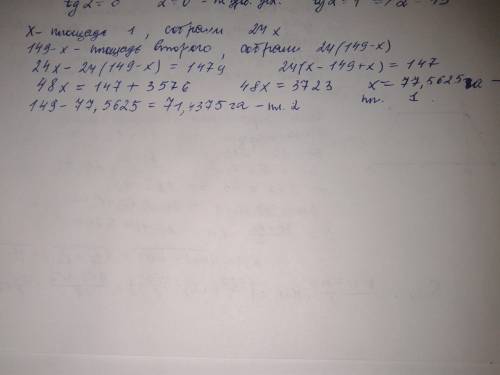 x - площадь 1, собрали 24x
149-x - площадь второго, собрали 24(149-x)
24x - 24(149-x) = 147ц 24(x-149+x) = 147
48x = 147 + 3576 48x = 3723 x = 77,5625 га -
149 - 77,5625 = 71,4375 га - пл. 2 пл. 1.